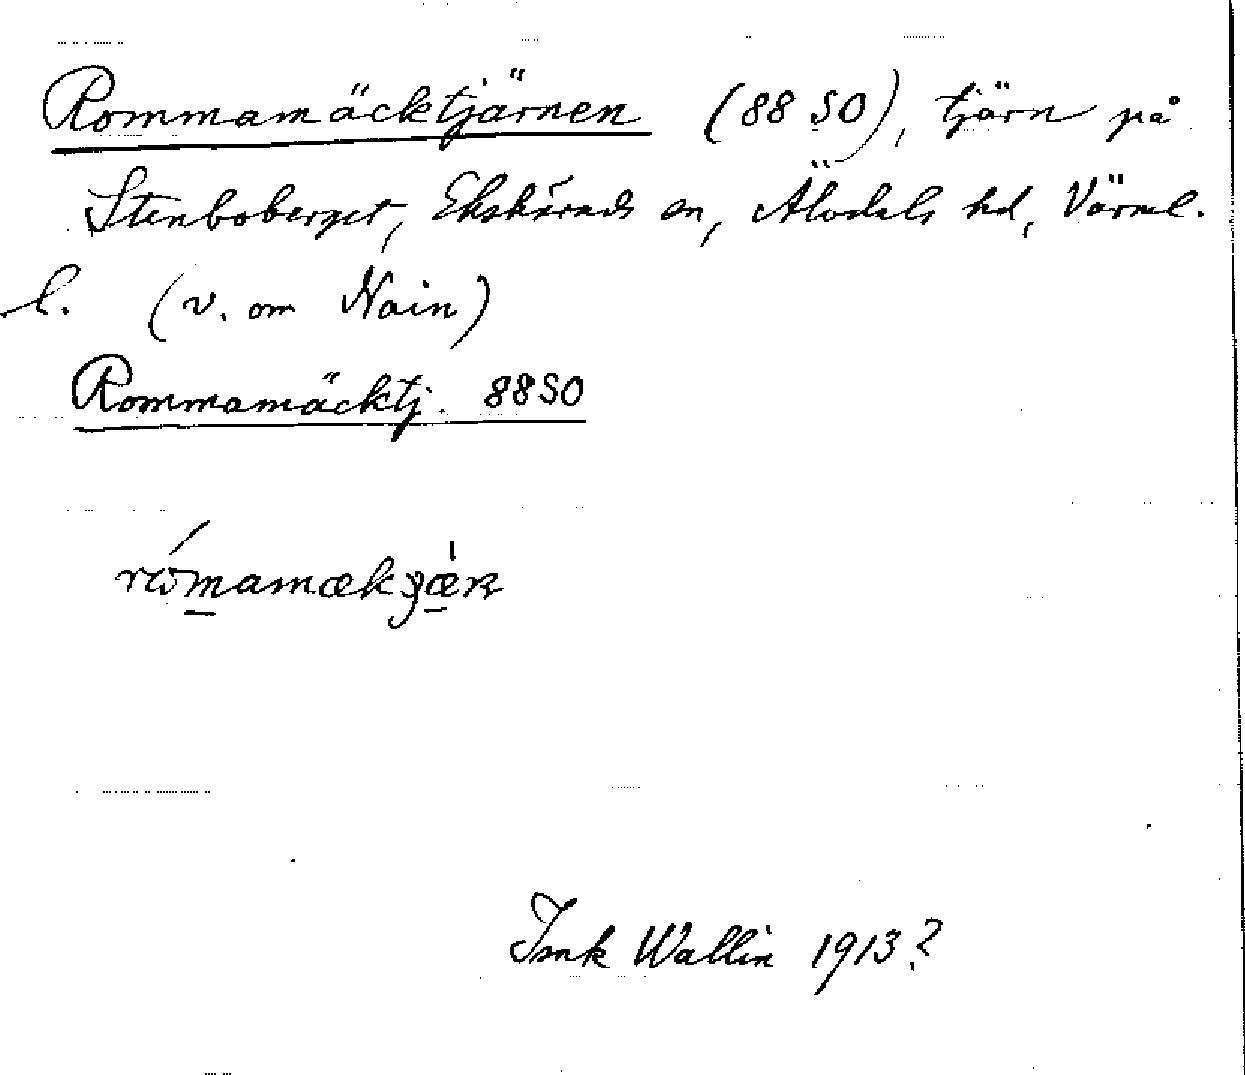 Rommamäcktjärnen (88 SO), tjärn på
Stenboberget, Ekshärads sn, Älvdals hd, Värml.
l. (v. om Nain)
Rommamäcktj. 88SO
Isak Wallin 1913?